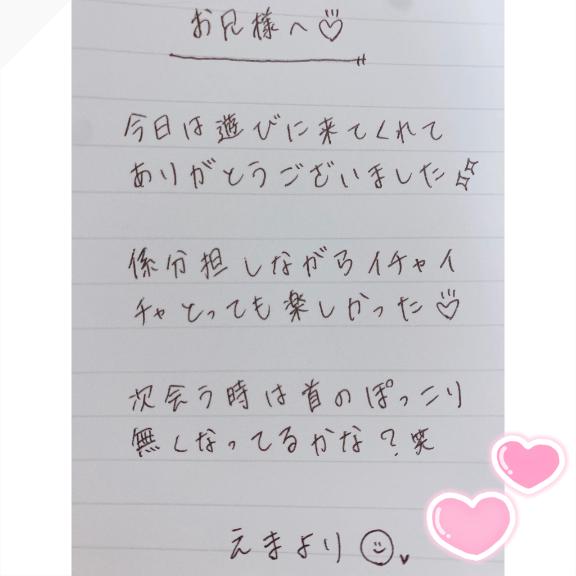 お兄様へ♡
今日は遊びに来てくれて
ありがとうございました
係分担しながらイチャイ
チャとっても楽しかった♡
次会う時は首のぽっこり
無くなってるかな?笑
えまより